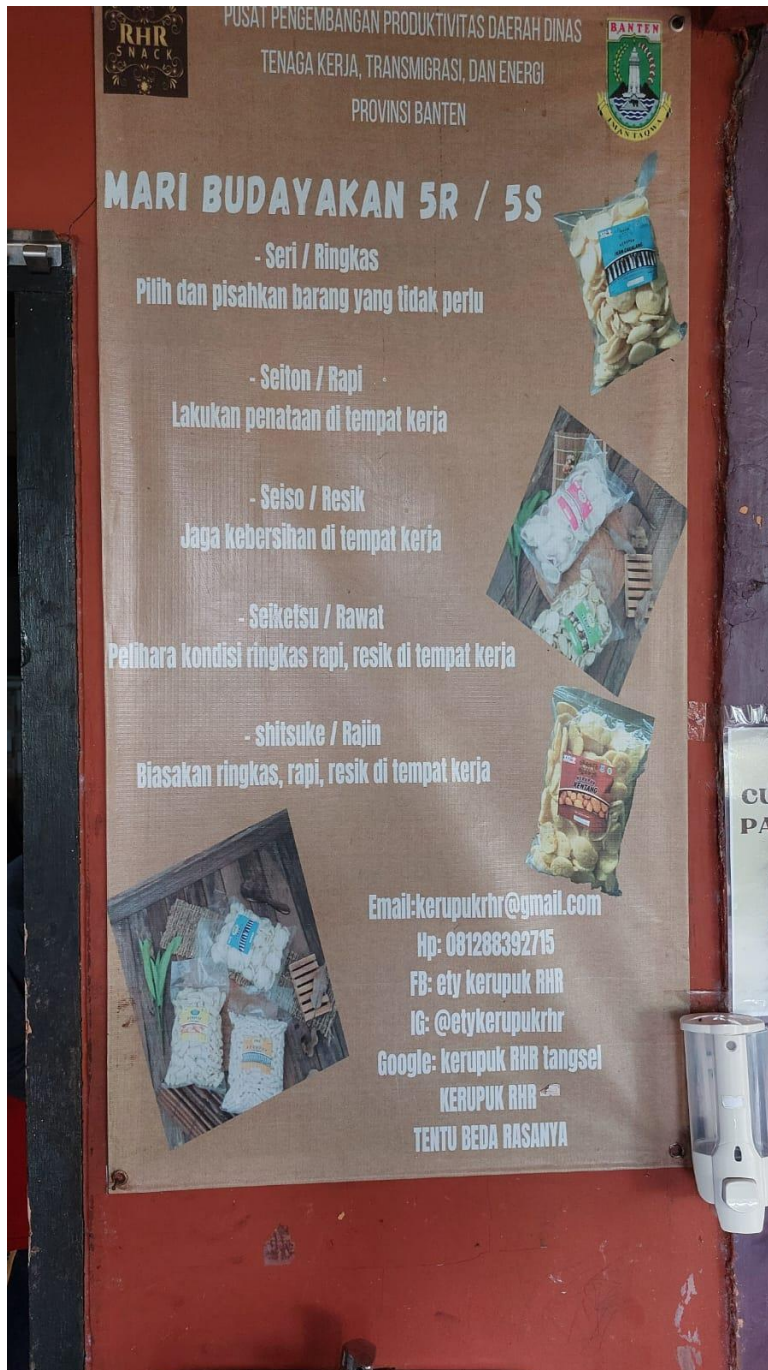 RHR
SNACK
PUSAT PENGEMBANGAN PRODUKTIVITAS DAERAH DINAS
TENAGA KERJA, TRANSMIGRASI, DAN ENERGI
PROVINSI BANTEN
BANTEN
IMAN TAQWA
MARI BUDAYAKAN 5R / 5S
- Seri / Ringkas
Pilih dan pisahkan barang yang tidak perlu
- Seiton / Rapi
Lakukan penataan di tempat kerja
- Seiso / Resik
Jaga kebersihan di tempat kerja
- Seiketsu / Rawat
Pelihara kondisi ringkas rapi, resik di tempat kerja
- shitsuke / Rajin
Biasakan ringkas, rapi, resik di tempat kerja
KENTANG
Email:kerupukrhr@gmail.com
Hp: 081288392715
FB: ety kerupuk RHR
IG: @etykerupukrhr
Google: kerupuk RHR tangsel
KERUPUK RHR
TENTU BEDA RASANYA
CU
PA